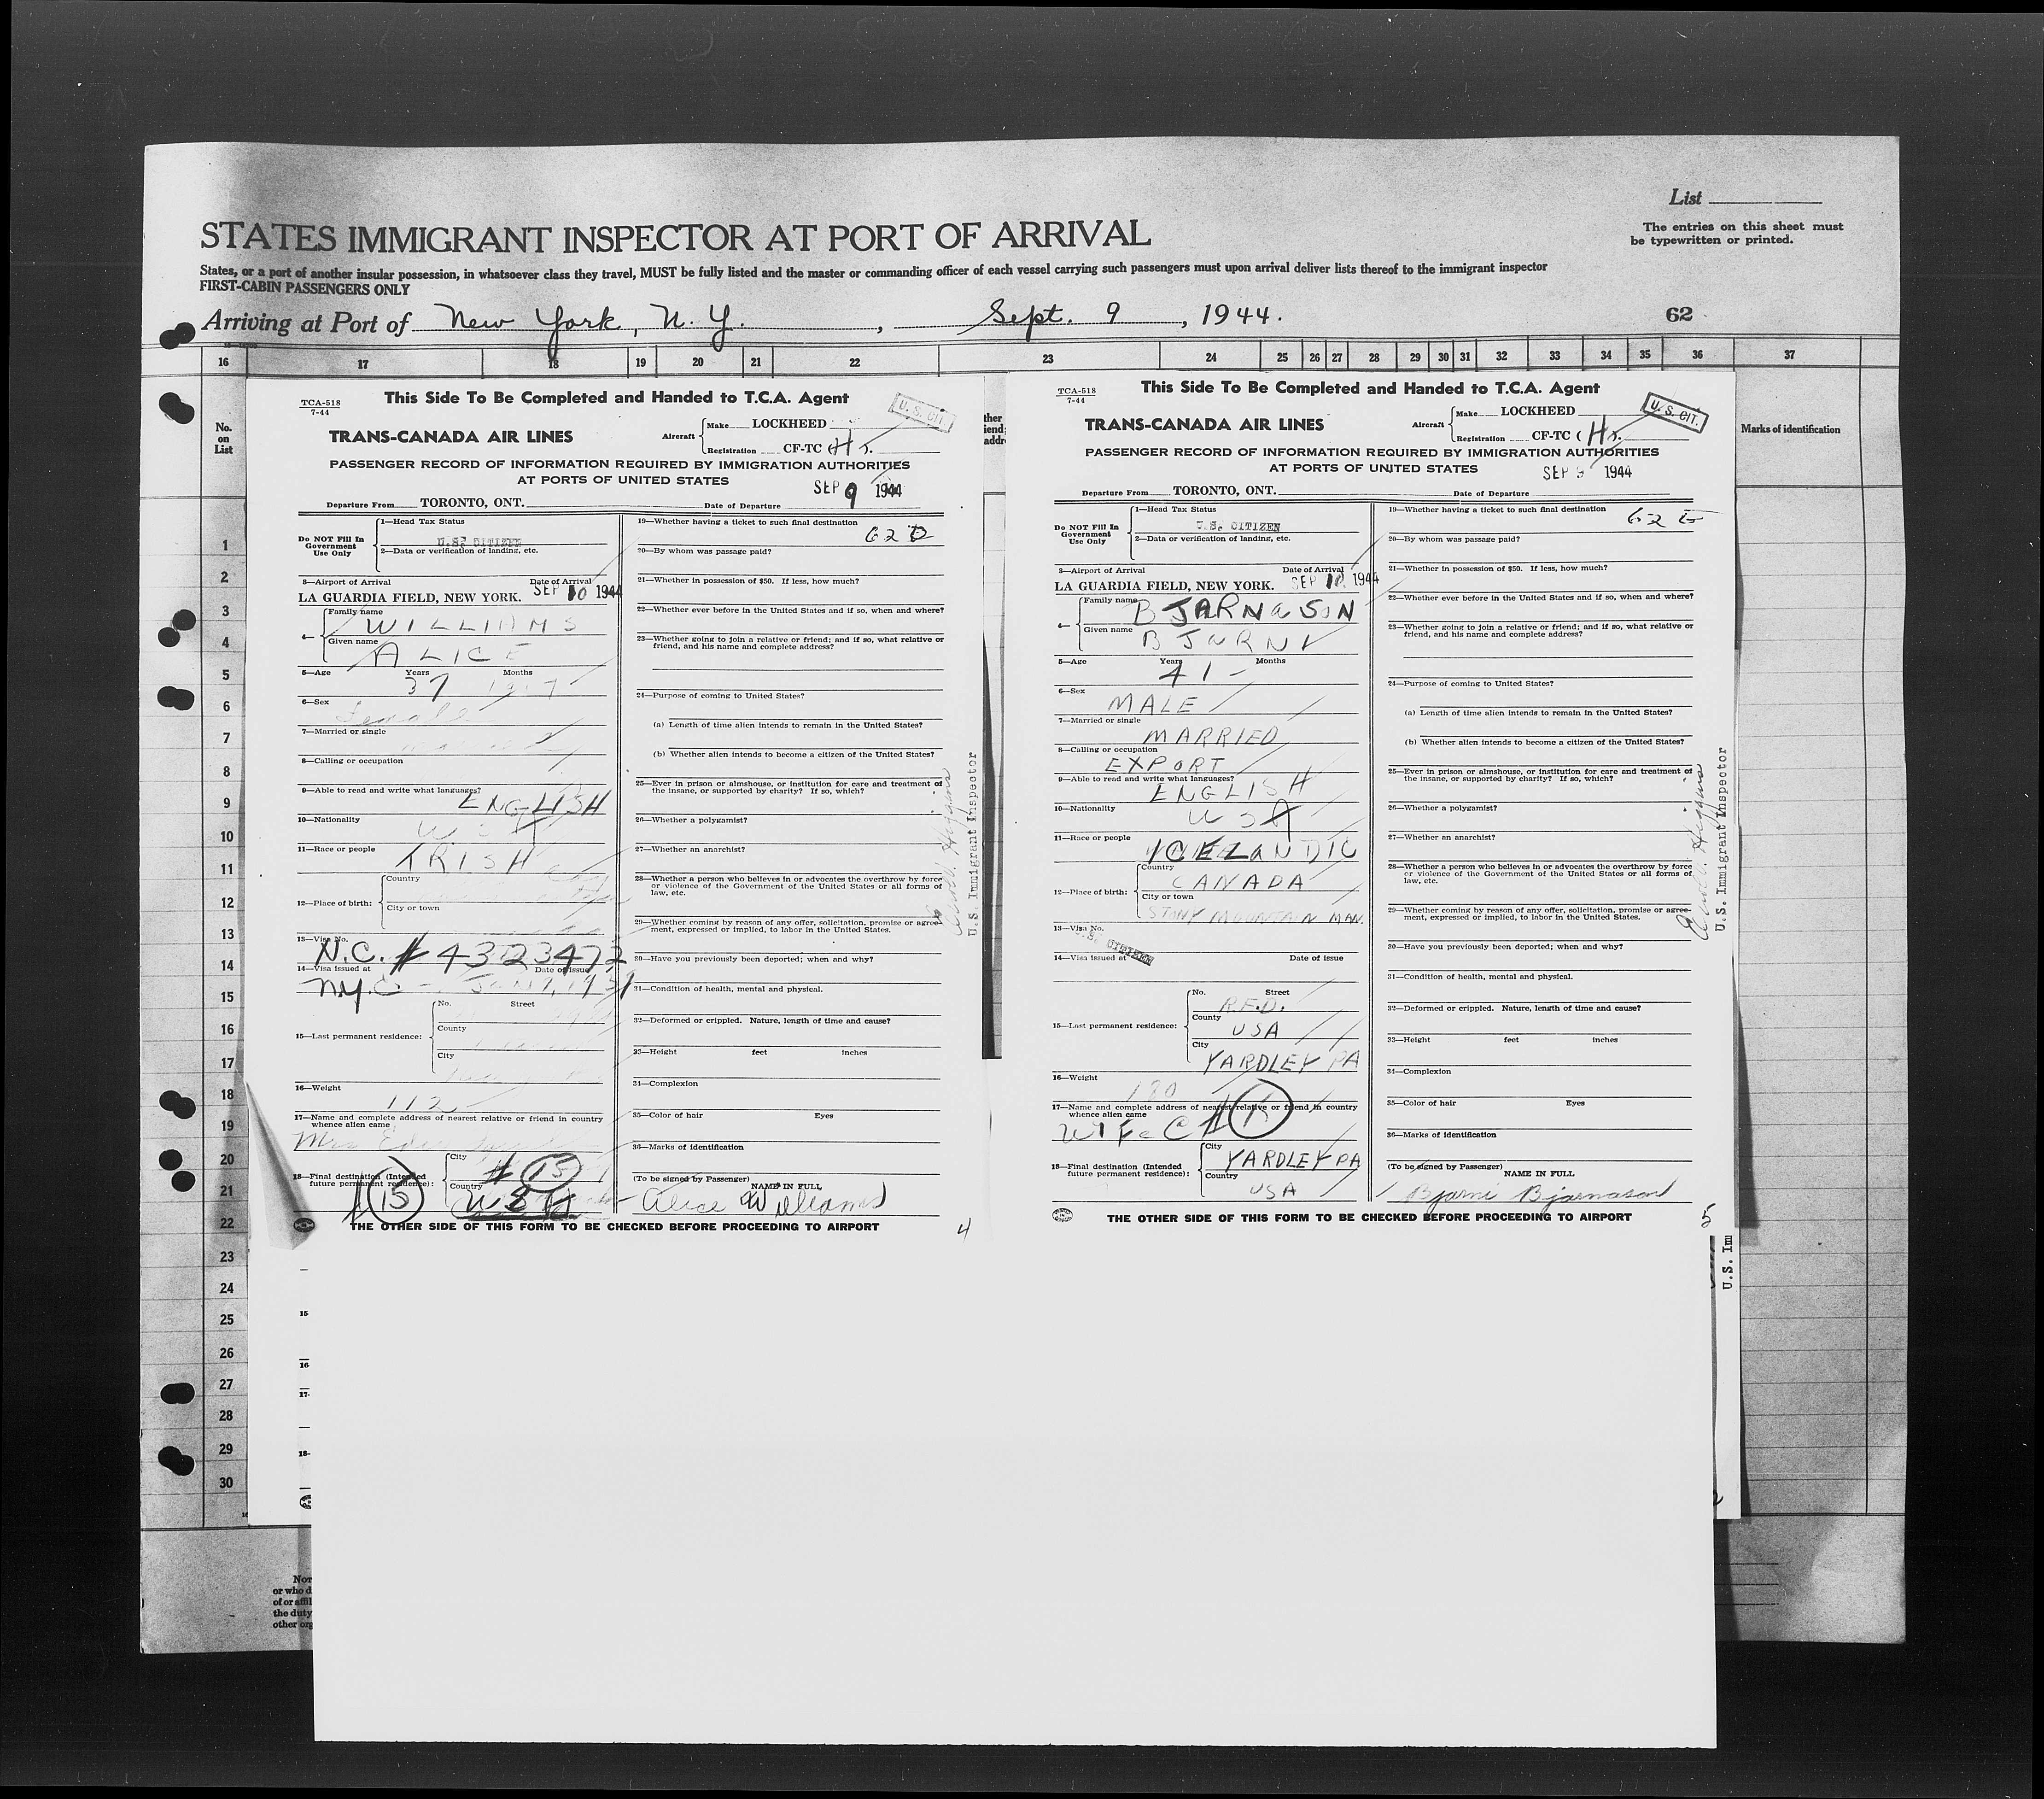 List
The entries on this sheet must
be typewritten or printed.
STATES IMMIGRANT INSPECTOR AT PORT OF ARRIVAL
States, or a port of another insular possession, in whatsoever class they travel, MUST be fully listed and the master or commanding officer of each vessel carrying such passengers must upon arrival deliver lists thereof to the immigrant inspector
FIRST-CABIN PASSENGERS ONLY
Arriving at Port of New York, N. Y., Sept. 9, 1944.
62
16 17 18 19 20 21 22 23 24 25 26 27 28 29 30 31 32 33 34 35 36 37
No.
on
List
Marks of identification
1
2
3
4
5
6
7
8
9
10
11
12
13
14
15
16
17
18
19
20
21
22
23
24
25
26
27
28
29
30
TCA-518
7-44
This Side To Be Completed and Handed to T.C.A. Agent
U. S. CIT.
TRANS-CANADA AIR LINES
Aircraft
Make LOCKHEED
Registration CF-TC (H).
PASSENGER RECORD OF INFORMATION REQUIRED BY IMMIGRATION AUTHORITIES
AT PORTS OF UNITED STATES
SEP 9 1944
Departure From TORONTO, ONT. Date of Departure
Do NOT Fill In
Government
Use Only
1—Head Tax Status
U.S. CITIZEN
2—Data or verification of landing, etc.
3—Airport of Arrival Date of Arrival
LA GUARDIA FIELD, NEW YORK. SEP 10 1944
4—
Family name
WILLIAMS
Given name
ALICE
5—Age Years Months
37
6—Sex
Female
7—Married or single
8—Calling or occupation
9—Able to read and write what languages?
ENGLISH
10—Nationality
USA
11—Race or people
IRISH
12—Place of birth:
Country
City or town
13—Visa No.
N.C. # 4323472
14—Visa issued at Date of issue
N.Y.C.
15—Last permanent residence:
No. Street
County
City
16—Weight
112
17—Name and complete address of nearest relative or friend in country
whence alien came
Mrs
18—Final destination (Intended
future permanent residence):
City
# 15
Country
USA
# 15
19—Whether having a ticket to such final destination
62 D
20—By whom was passage paid?
21—Whether in possession of $50. If less, how much?
22—Whether ever before in the United States and if so, when and where?
23—Whether going to join a relative or friend; and if so, what relative or
friend, and his name and complete address?
24—Purpose of coming to United States?
(a) Length of time alien intends to remain in the United States?
(b) Whether alien intends to become a citizen of the United States?
25—Ever in prison or almshouse, or institution for care and treatment of
the insane, or supported by charity? If so, which?
26—Whether a polygamist?
27—Whether an anarchist?
28—Whether a person who believes in or advocates the overthrow by force
or violence of the Government of the United States or all forms of
law, etc.
29—Whether coming by reason of any offer, solicitation, promise or agree-
ment, expressed or implied, to labor in the United States.
30—Have you previously been deported; when and why?
31—Condition of health, mental and physical.
32—Deformed or crippled. Nature, length of time and cause?
33—Height feet inches
34—Complexion
35—Color of hair Eyes
36—Marks of identification
(To be signed by Passenger)
NAME IN FULL
Alice Williams
THE OTHER SIDE OF THIS FORM TO BE CHECKED BEFORE PROCEEDING TO AIRPORT
4
U.S. Immigrant Inspector
TCA-518
7-44
This Side To Be Completed and Handed to T.C.A. Agent
U. S. CIT.
TRANS-CANADA AIR LINES
Aircraft
Make LOCKHEED
Registration CF-TC (H).
PASSENGER RECORD OF INFORMATION REQUIRED BY IMMIGRATION AUTHORITIES
AT PORTS OF UNITED STATES
SEP 9 1944
Departure From TORONTO, ONT. Date of Departure
Do NOT Fill In
Government
Use Only
1—Head Tax Status
U.S. CITIZEN
2—Data or verification of landing, etc.
3—Airport of Arrival Date of Arrival
LA GUARDIA FIELD, NEW YORK. SEP 10 1944
4—
Family name
BJARNASON
Given name
BJARNI
5—Age Years Months
41 -
6—Sex
MALE
7—Married or single
MARRIED
8—Calling or occupation
EXPORT
9—Able to read and write what languages?
ENGLISH
10—Nationality
USA
11—Race or people
ICELANDIC
12—Place of birth:
Country
CANADA
City or town
STONY MOUNTAIN MAN.
13—Visa No.
U.S. CITIZEN
14—Visa issued at Date of issue
15—Last permanent residence:
No. Street
R.F.D.
County
USA
City
YARDLEY PA
16—Weight
180
17—Name and complete address of nearest relative or friend in country
whence alien came
WIFE
18—Final destination (Intended
future permanent residence):
City
YARDLEY PA
Country
USA
19—Whether having a ticket to such final destination
62 E
20—By whom was passage paid?
21—Whether in possession of $50. If less, how much?
22—Whether ever before in the United States and if so, when and where?
23—Whether going to join a relative or friend; and if so, what relative or
friend, and his name and complete address?
24—Purpose of coming to United States?
(a) Length of time alien intends to remain in the United States?
(b) Whether alien intends to become a citizen of the United States?
25—Ever in prison or almshouse, or institution for care and treatment of
the insane, or supported by charity? If so, which?
26—Whether a polygamist?
27—Whether an anarchist?
28—Whether a person who believes in or advocates the overthrow by force
or violence of the Government of the United States or all forms of
law, etc.
29—Whether coming by reason of any offer, solicitation, promise or agree-
ment, expressed or implied, to labor in the United States.
30—Have you previously been deported; when and why?
31—Condition of health, mental and physical.
32—Deformed or crippled. Nature, length of time and cause?
33—Height feet inches
34—Complexion
35—Color of hair Eyes
36—Marks of identification
(To be signed by Passenger)
NAME IN FULL
Bjarni Bjarnason
THE OTHER SIDE OF THIS FORM TO BE CHECKED BEFORE PROCEEDING TO AIRPORT
5
U.S. Immigrant Inspector